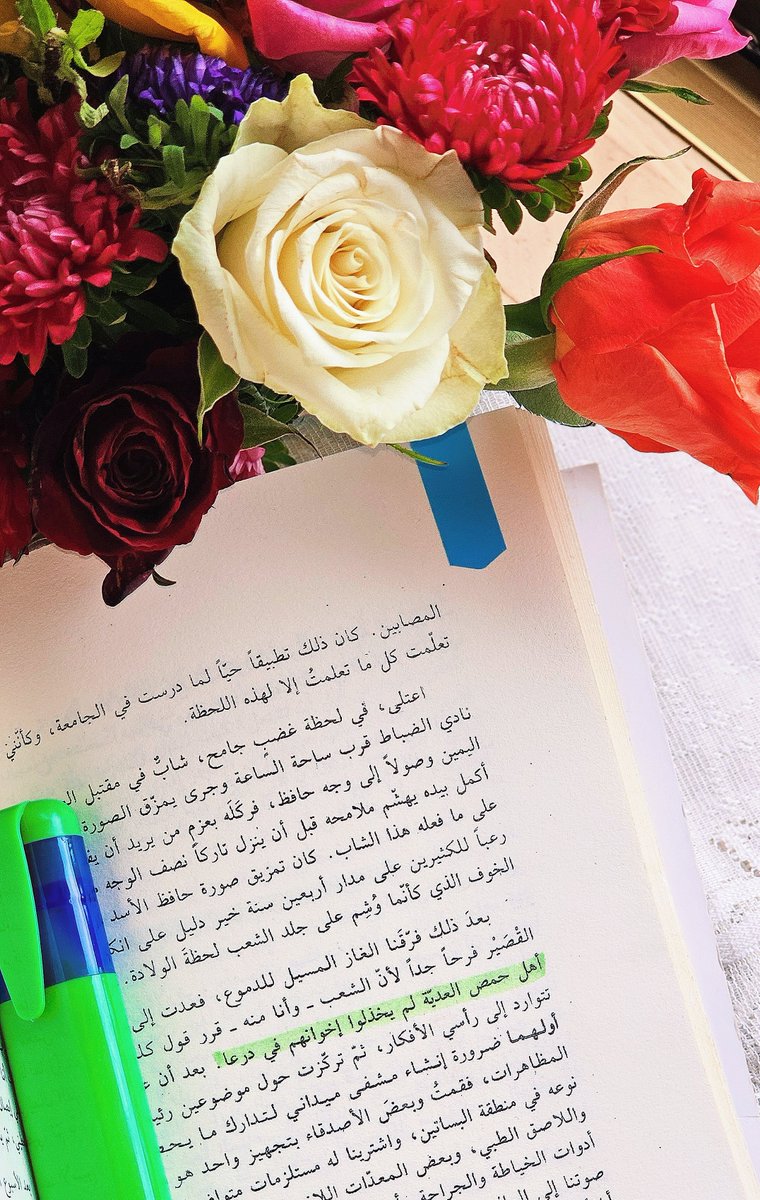 المصابين. كان ذلك تطبيقاً حيّاً لما درست في الجامعة، وكأنّني
تعلّمت كل ما تعلمتُ إلا لهذه اللحظة.
اعتلى، في لحظة غضبٍ جامح، شابٌّ في مقتبل
نادي الضباط قرب ساحة الساعة وجرى يمزّق الصورة
اليمين وصولاً إلى وجه حافظ، فركَلَه بعزم من يريد أن
أكمل بيده يهشّم ملامحه قبل أن ينزل تاركاً نصف الوجه
على ما فعله هذا الشاب. كان تمزيق صورة حافظ الأسد
رعباً للكثيرين على مدار أربعين سنة خير دليل على
الخوف الذي كأنّما وُشِم على جلد الشعب لحظةَ الولادة.
بعدَ ذلك فرّقَنا الغاز المسيل للدموع، فعدت إلى
القُصَيْر فرحاً جداً لأنّ الشعب ـ وأنا منه ـ قرر قول
أهل حمص العديّة لم يخذلوا إخوانهم في درعا. بعد أن
تتوارد إلى رأسي الأفكار، ثمّ تركّزت حول موضوعين
أولهما ضرورة إنشاء مشفى ميداني لتدارك ما
المظاهرات، فقمتُ وبعضَ الأصدقاء بتجهيز واحد هو
نوعه في منطقة البساتين، واشترينا له مستلزمات
واللاصق الطبي، وبعض المعدّات
أدوات الخياطة والجراحة
صوتنا إلى